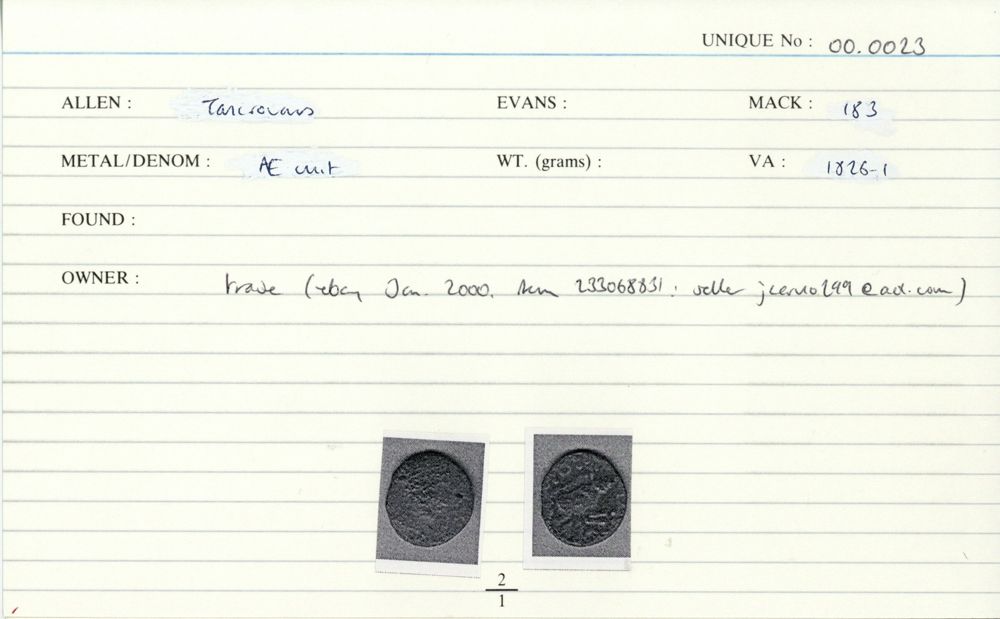 UNIQUE No : 00.0023
ALLEN : Tasciovanus EVANS : MACK : 183
METAL/DENOM : Æ unit WT. (grams) : VA : 1826-1
FOUND :
OWNER : trade (ebay Jan. 2000. item 233068831 : seller @aol.com)
2
1